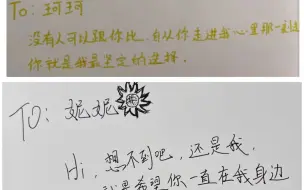 To: 珂珂
没有人可以跟你比. 自从你走进我心里那一刻起
你就是我最坚定的选择.
TO: 妮妮
Hi, 想不到吧, 还是我,
就是希望你一直在我身边